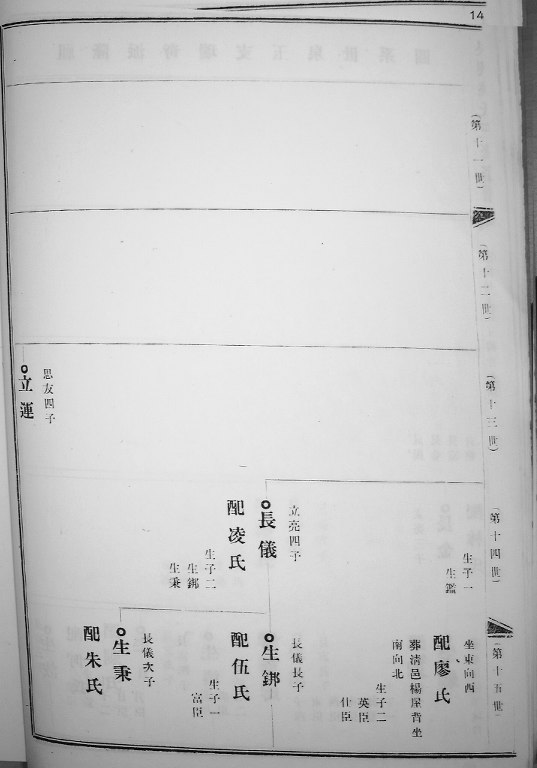 14
(第十一世)
(第十二世)
(第十三世)
思友四子
立運
(第十四世)
生子一
生鑑
立亮四子
長儀
配凌氏
生子二
生鄉
生秉
(第十五世)
坐東向西
配廖氏
葬清邑楊屋背坐
南向北
生子二
英臣
仕臣
長儀長子
生鄉
配伍氏
生子一
富臣
長儀次子
生秉
配朱氏